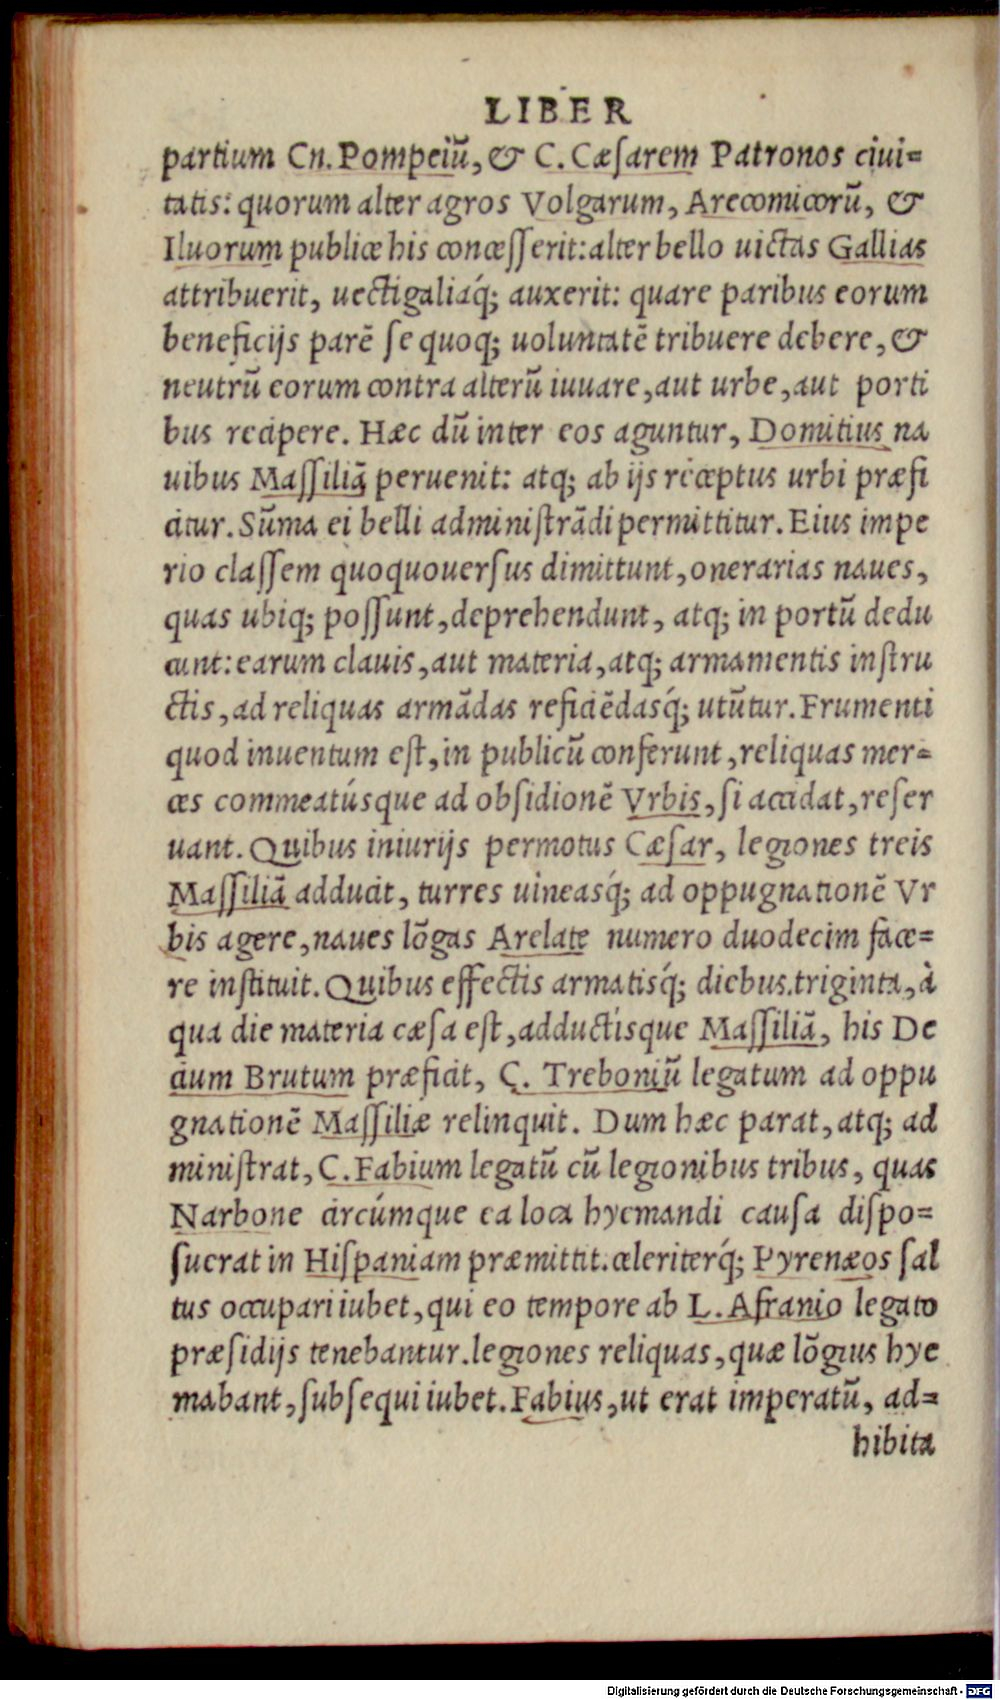 LIBER
partium Cn. Pompeiũ, & C. Cæſarem Patronos ciui=
tatis: quorum alter agros Volgarum, Arecomicorũ, &
Iluorum publice his conceſſerit: alter bello uictas Gallias
attribuerit, uectigaliáq́; auxerit: quare paribus eorum
beneficijs parẽ ſe quoq; uoluntatẽ tribuere debere, &
neutrũ eorum contra alterũ iuuare, aut urbe, aut porti
bus recipere. Hæc dũ inter eos aguntur, Domitius na
uibus Maſſiliã peruenit: atq; ab ijs receptus urbi præfi
citur. Sũma ei belli adminiſtrãdi permittitur. Eius impe
rio claſſem quoquouerſus dimittunt, onerarias naues,
quas ubiq; poſſunt, deprehendunt, atq; in portũ dedu
cunt: earum clauis, aut materia, atq; armamentis inſtru
ctis, ad reliquas armãdas reficiẽdasq́; utũtur. Frumenti
quod inuentum eſt, in publicũ conferunt, reliquas mer=
ces commeatúsque ad obſidionẽ Vrbis, ſi accidat, reſer
uant. Quibus iniurijs permotus Cæſar, legiones treis
Maſſiliã adducit, turres uineasq́; ad oppugnationẽ Vr
bis agere, naues lõgas Arelate numero duodecim face=
re inſtituit. Quibus effectis armatisq́; diebus.triginta, à
qua die materia cæſa eſt, adductisque Maſſiliã, his De
cium Brutum præficit, C. Treboniũ legatum ad oppu
gnationẽ Maſſiliæ relinquit. Dum hæc parat, atq; ad
miniſtrat, C. Fabium legatũ cũ legionibus tribus, quas
Narbone circúmque ea loca hyemandi cauſa diſpo=
ſuerat in Hiſpaniam præmittit. celeriterq́; Pyrenæos ſal
tus occupari iubet, qui eo tempore ab L. Afranio legato
præſidijs tenebantur. legiones reliquas, quæ lõgius hye
mabant, ſubſequi iubet. Fabius, ut erat imperatũ, ad=
hibita
Digitalisierung gefördert durch die Deutsche Forschungsgemeinschaft - DFG